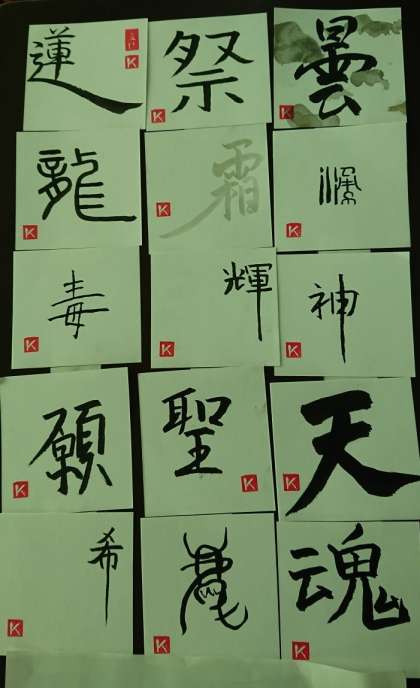 蓮 K
祭 K
曇 K
龍 K
霜 K
K
毒 K
輝 K
神 K
願 K
聖 K
天 K
希 K
K
魂 K